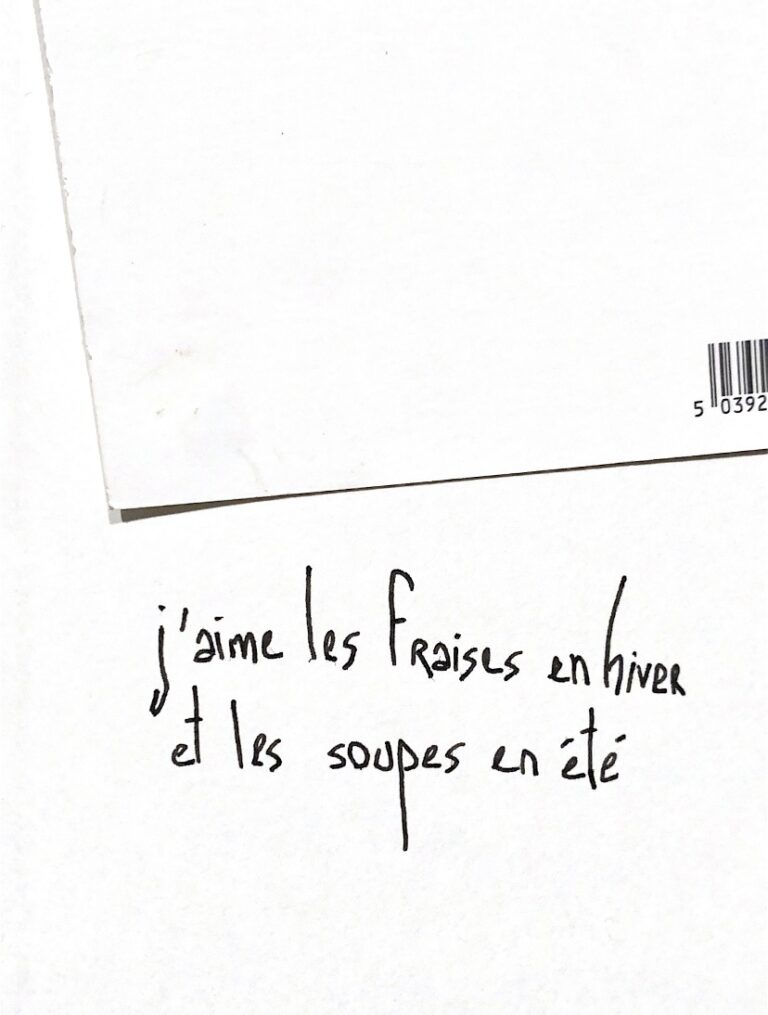 5 0392
j'aime les fraises en hiver
et les soupes en été